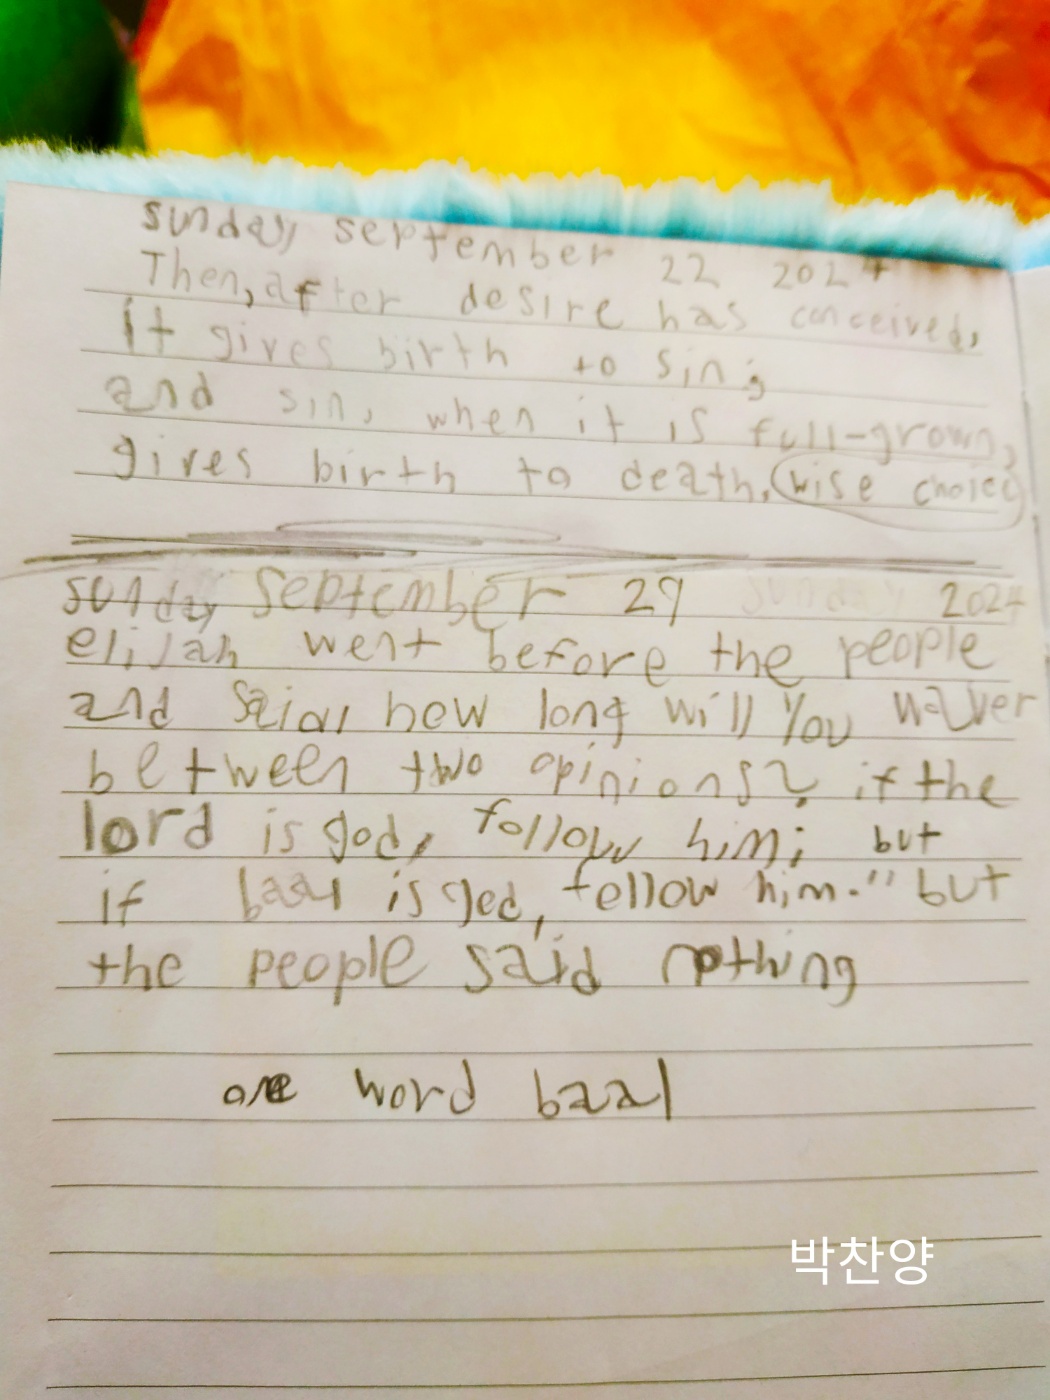 sunday september 22 2024
Then, after desire has conceived,
it gives birth to sin;
and sin, when it is full-grown,
gives birth to death. wise choice
sunday September 29 2024
elijah went before the people
and said, how long will you waver
between two opinions? if the
lord is god, follow him; but
if baal is god, follow him." but
the people said nothing
one word baal
박찬양